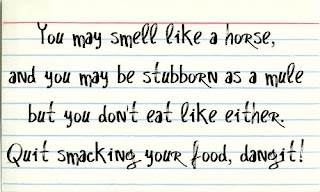 You may smell like a horse,
and you may be stubborn as a mule
but you don't eat like either.
Quit smacking your food, dangit!